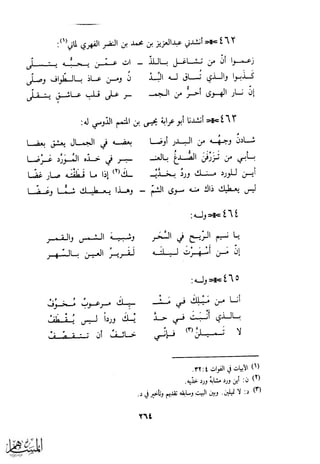 ٤٦٢ – أنشدني عبدالعزيز بن محمد بن النضر الفهري لماني(١):
زعموا أن من تشاغل باللذ – ات عمّن يحبّه يتسلّى
كذبوا والذي تساق له البُد – نُ ومن عاذ بالطواف وصلّى
إنّ نار الهوى أحرّ من الجمـ – ـر على قلب عاشق يتقلّى
٤٦٣ – أنشدنا أبو عرابة يحيى بن المتمم الدوسي له:
شادنٌ وجهه من البدر أوضا – بعضه في الجمال يعشق بعضا
بأبي من تزرفن الصدغ بالعنـ – ـبر في خدّه المورّد عرضا
أين للورد منك ورد بخديـ – ـك(٢) إذا ما قطفته صار غضّا
ليس يعطيك ذاك منه سوى الشم – وهذا يعطيك شمّا وعضّا
٤٦٤ – وله:
يا نسيم الريح في السّحر – وشبيه الشمس والقمر
إنّ من أسهرت ليلته – لقرير العين بالسهر
٤٦٥ – وله:
أنا من ميلك في مشـ – ـيك مرعوب مخوّف
بالذي أنبت في خدّ – يك ورداً ليس يُقطف
لا تميلنّ(٣) فإني – خائف أن تتقصّف
(١) الأبيات في الفوات ٣٢:٤.
(٢) ن: أين ورد مشابة ورد خديه.
(٣) د: لا تميلين. وبين البيت وسابقه تقديم وتأخير في د.
٢٦٤